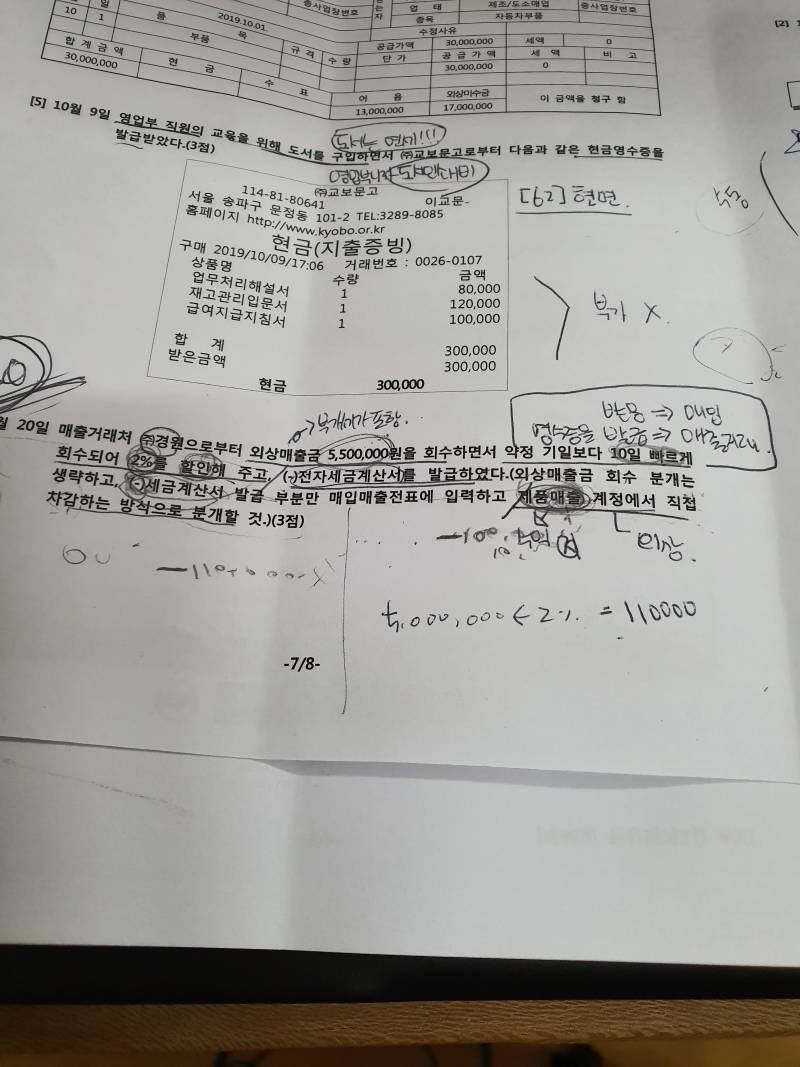 일
10 1
품 목
2019.10.01.
부품
규 격 수 량
종사업장번호
업 태 제조/도소매업
종목 자동차부품
종사업장번호
수정사유
공급가액 30,000,000 세액 0
단 가 공 급 가 액 세 액 비 고
30,000,000 0
합 계 금 액 현 금 수 표 어 음 외상미수금 이 금액을 청구 함
30,000,000 13,000,000 17,000,000
[2]
[5] 10월 9일 영업부 직원의 교육을 위해 도서를 구입하면서 ㈜교보문고로부터 다음과 같은 현금영수증을
발급받았다.(3점)
도서는 면세!!!
[62] 현면.
㈜교보문고
114-81-80641 이교문
서울 송파구 문정동 101-2 TEL:3289-8085
홈페이지 http://www.kyobo.or.kr
현금(지출증빙)
구매 2019/10/09/17:06 거래번호 : 0026-0107
상품명 수량 금액
업무처리해설서 1 80,000
재고관리입문서 1 120,000
급여지급지침서 1 100,000
합 계 300,000
받은금액 300,000
현금 300,000
부가 X.
받음 => 매입
영수증을 발급 =>
월 20일 매출거래처 ㈜경원으로부터 외상매출금 5,500,000원을 회수하면서 약정 기일보다 10일 빠르게
회수되어 2%를 할인해 주고, (-)전자세금계산서를 발급하였다.(외상매출금 회수 분개는
생략하고, (-)세금계산서 발급 부분만 매입매출전표에 입력하고 제품매출 계정에서 직접
차감하는 방식으로 분개할 것.)(3점)
외상.
5,000,000 2% = 110000
-7/8-